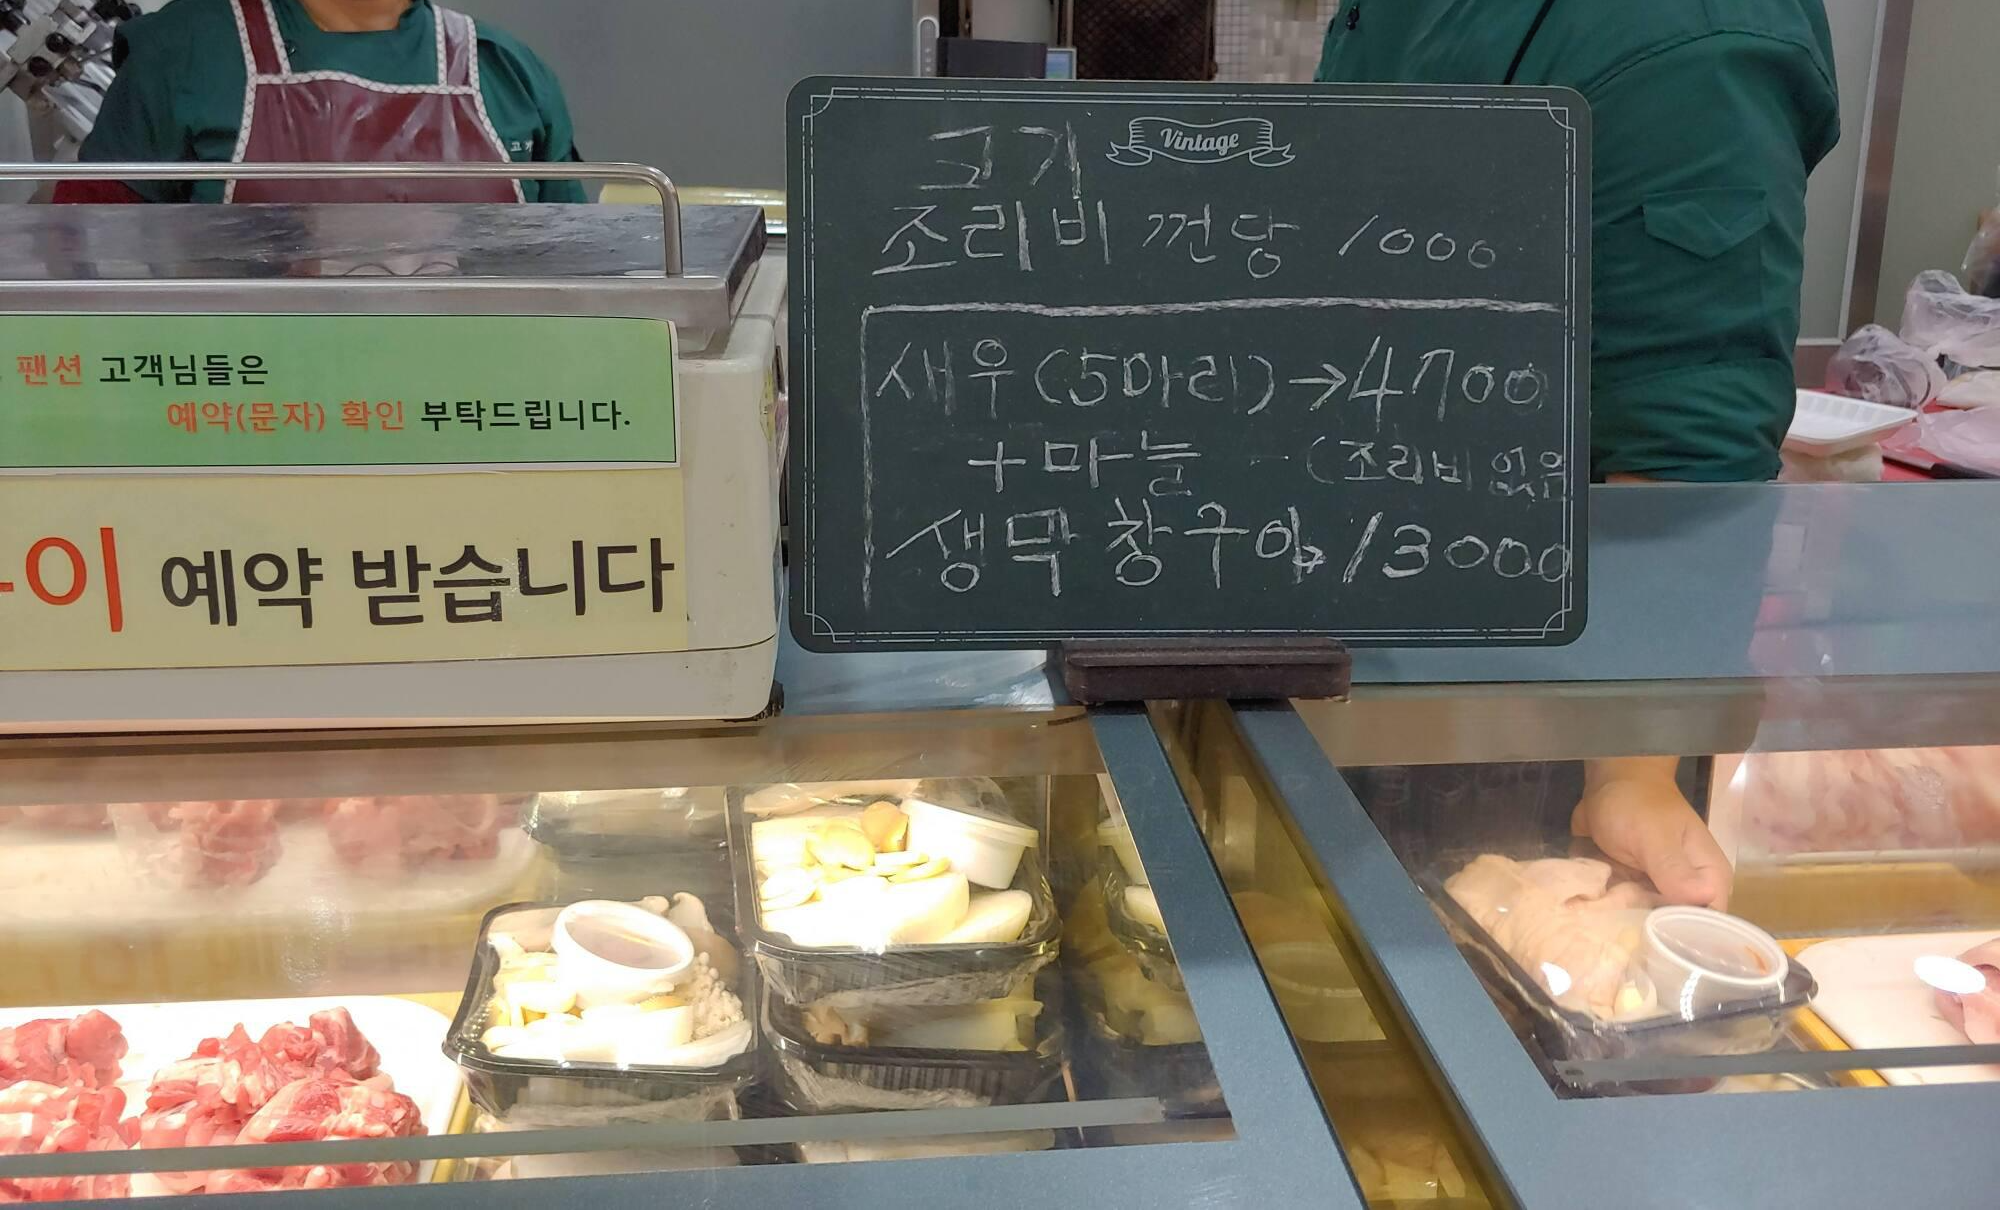 고기
Vintage
조리비 껀당 1000
새우(5마리)→4700
+마늘 - (조리비 없음
생막창구이 13000
팬션 고객님들은
예약(문자) 확인 부탁드립니다.
이 예약 받습니다